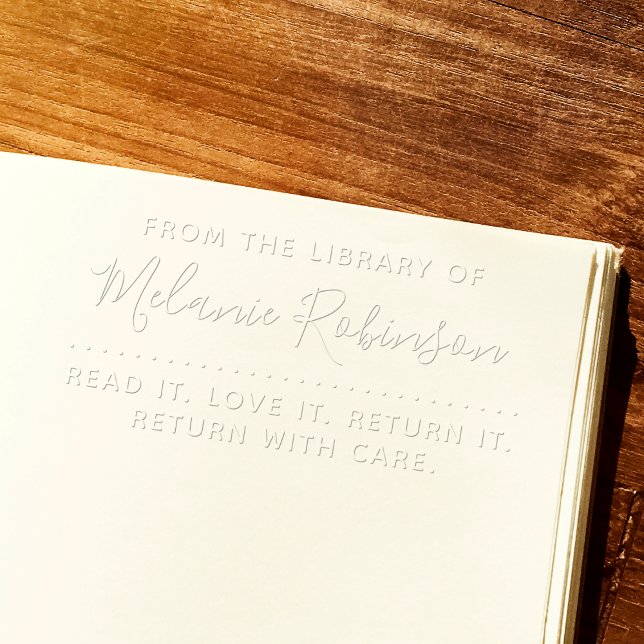 FROM THE LIBRARY OF
Melanie Robinson
READ IT. LOVE IT. RETURN IT.
RETURN WITH CARE.